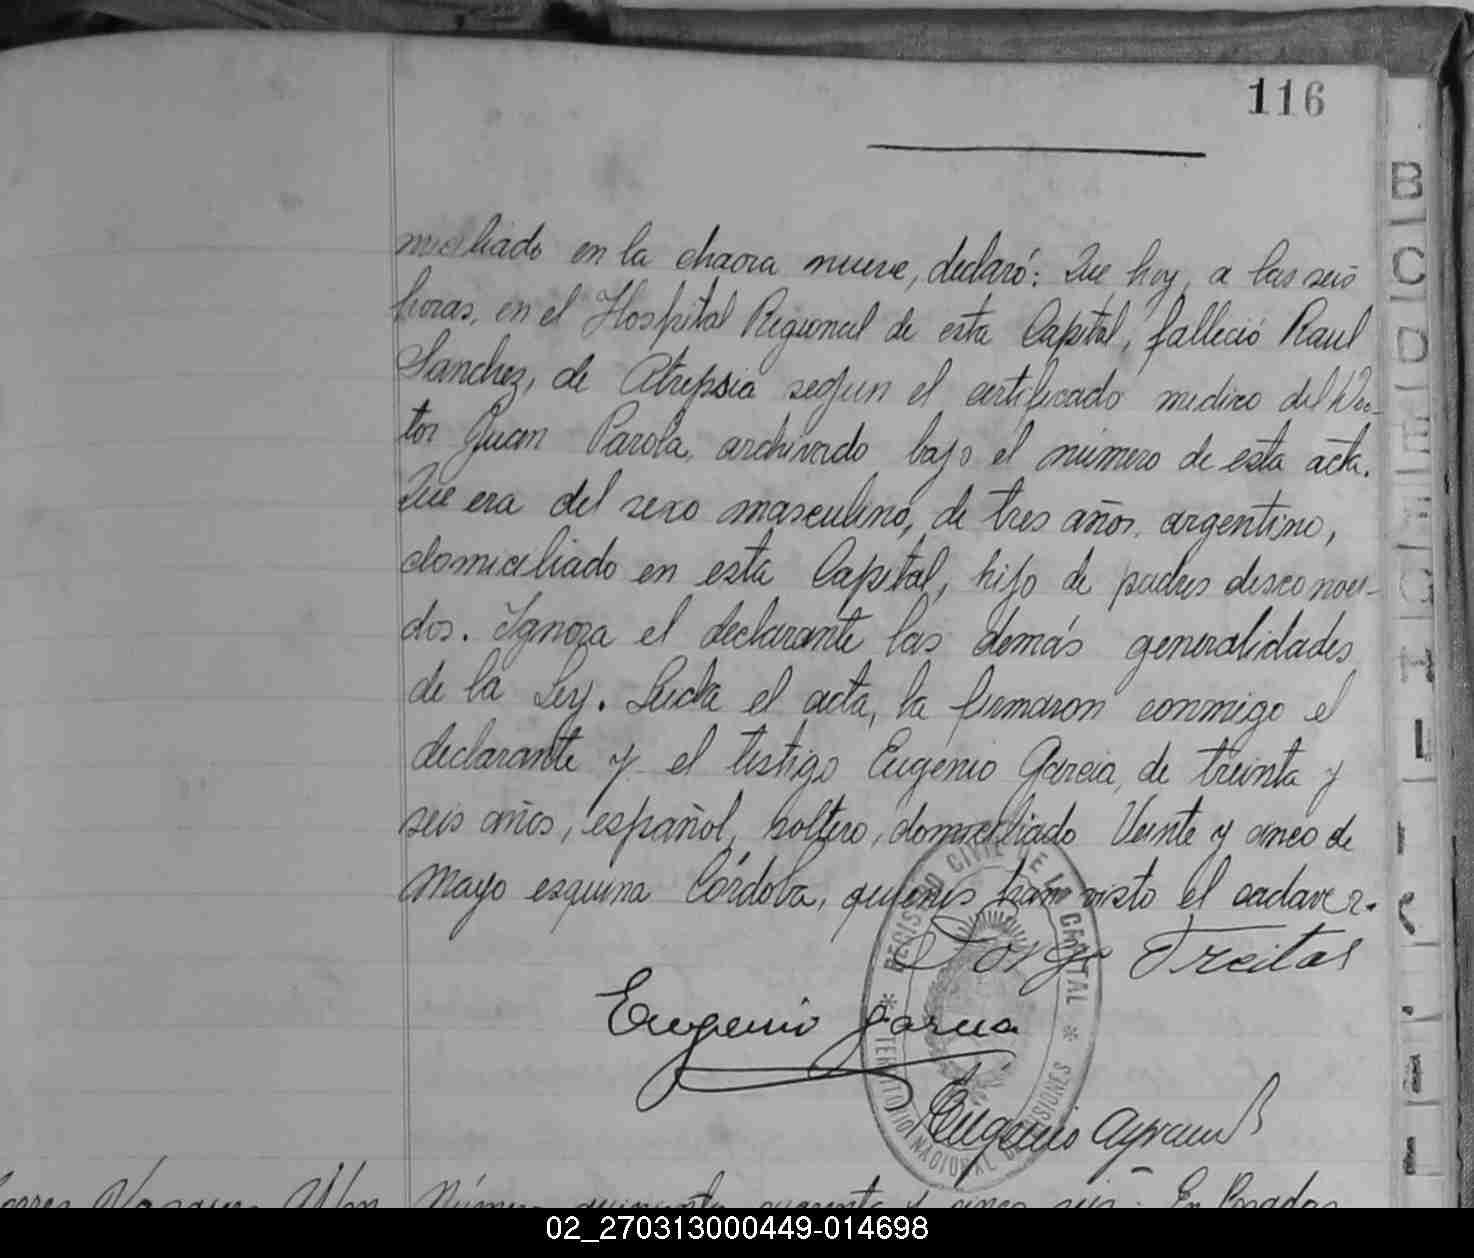 116
miciliado en la chacra nueve, declaró: Que hoy, a las seis
horas, en el Hospital Regional de esta Capital, falleció Raul
Sanchez, de Atrepsia segun el certificado medico del Doc-
tor Juan Parola, archivado bajo el número de esta acta.
Que era del sexo masculino, de tres años, argentino,
domiciliado en esta Capital, hijo de padres desconoci-
dos. Ignora el declarante las demás generalidades
de la Ley. Leida el acta, la firmaron conmigo el
declarante y el testigo Eugenio Garcia, de treinta y
seis años, español, soltero, domiciliado Veinte y cinco de
Mayo esquina Córdoba, quienes han visto el cadaver.
Jorge Freitas
Eugenio Garcia
Eugenio
REGISTRO CIVIL DE LA CAPITAL * TERRITORIO NACIONAL DE MISIONES *
Número quinientos cuarenta y cinco seis. En Posadas
B C D L
02_270313000449-014698